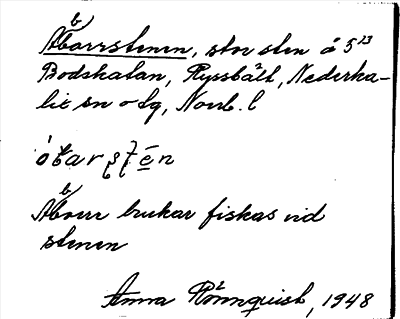 Abborrstenen, stor sten å 5²³
Bodskatan, Ryssbält, Nederka-
lix sn o dg, Norrb. l
Abborr brukar fiskas vid
stenen
Anna Rönnquist, 1948